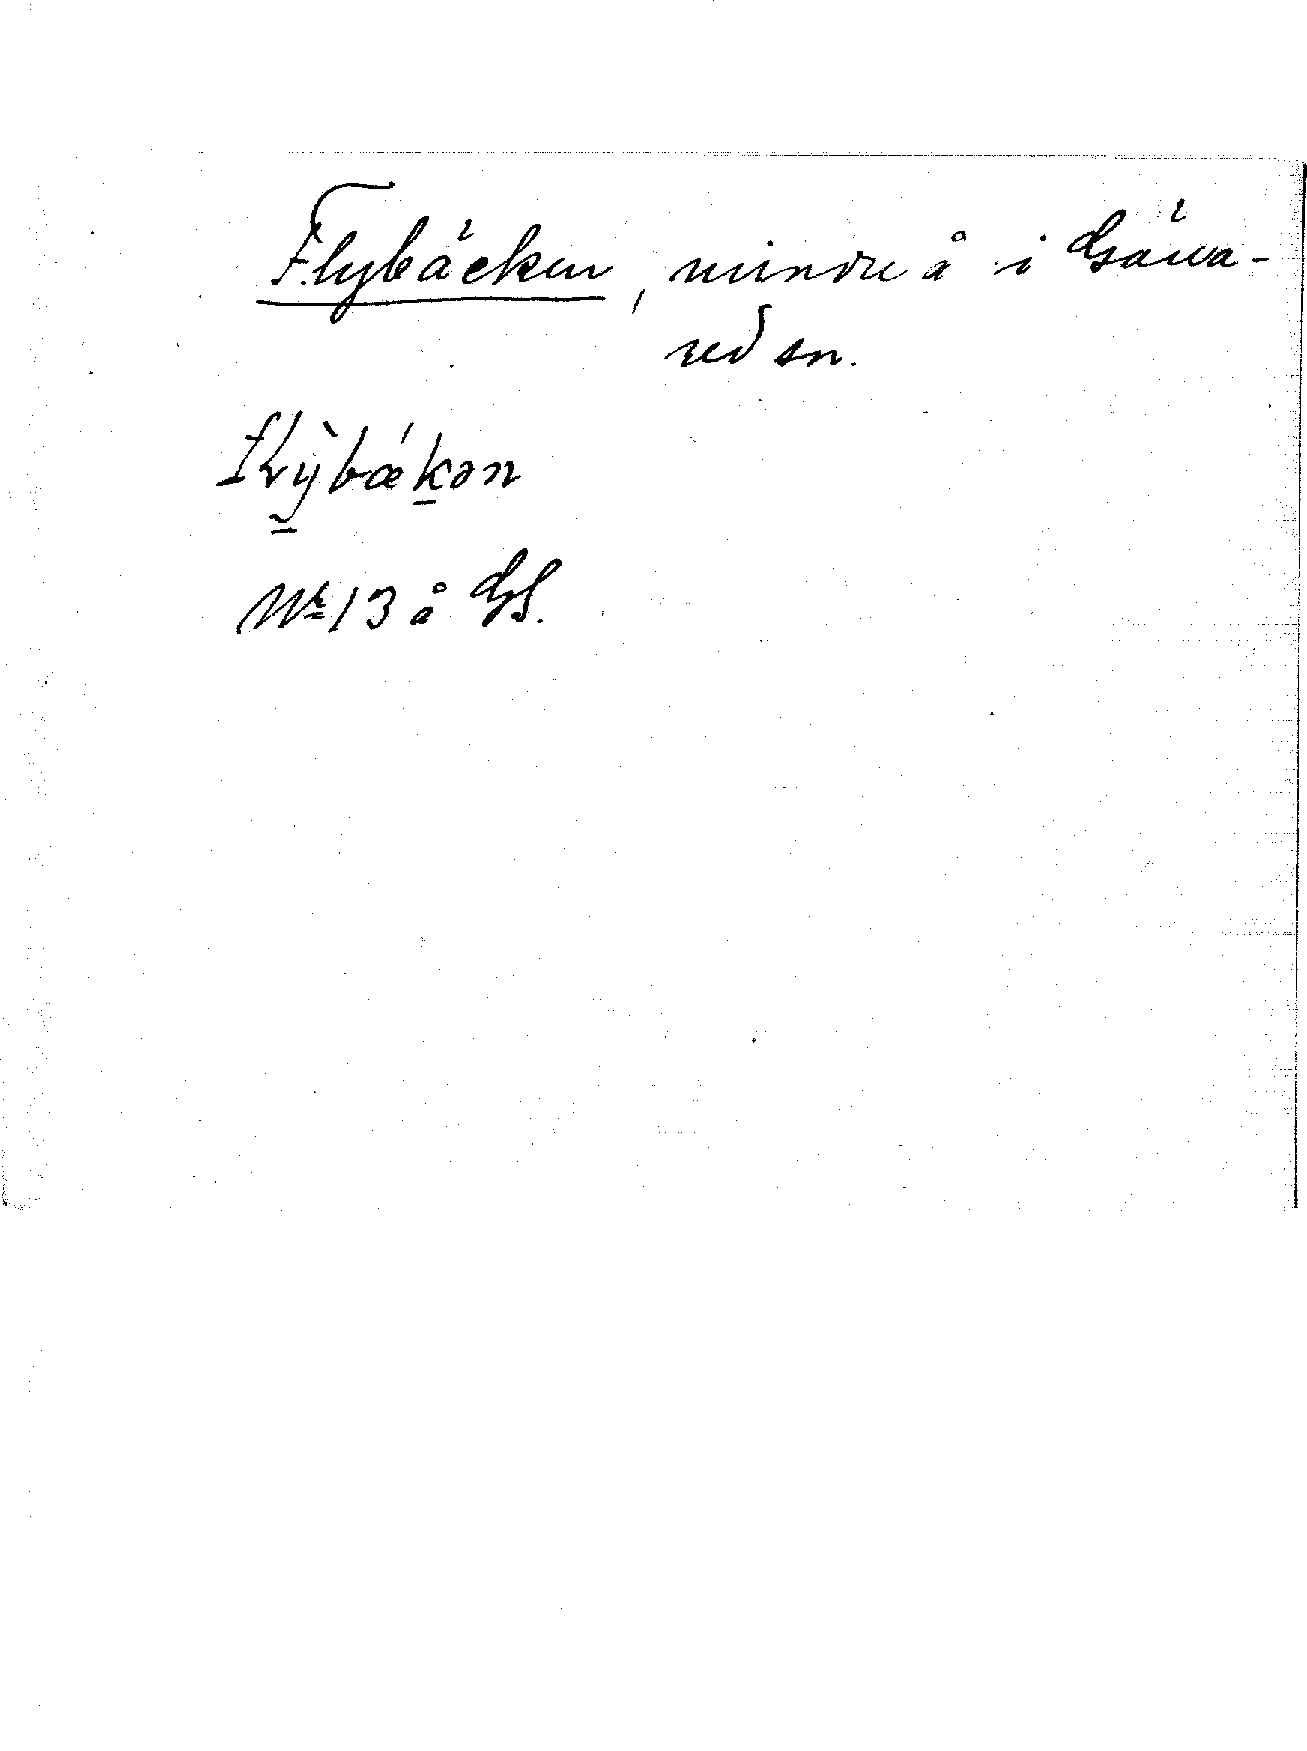 Flybäcken, mindre å i Gäna-
red sn.
flỳbækən
No 13 å GS.